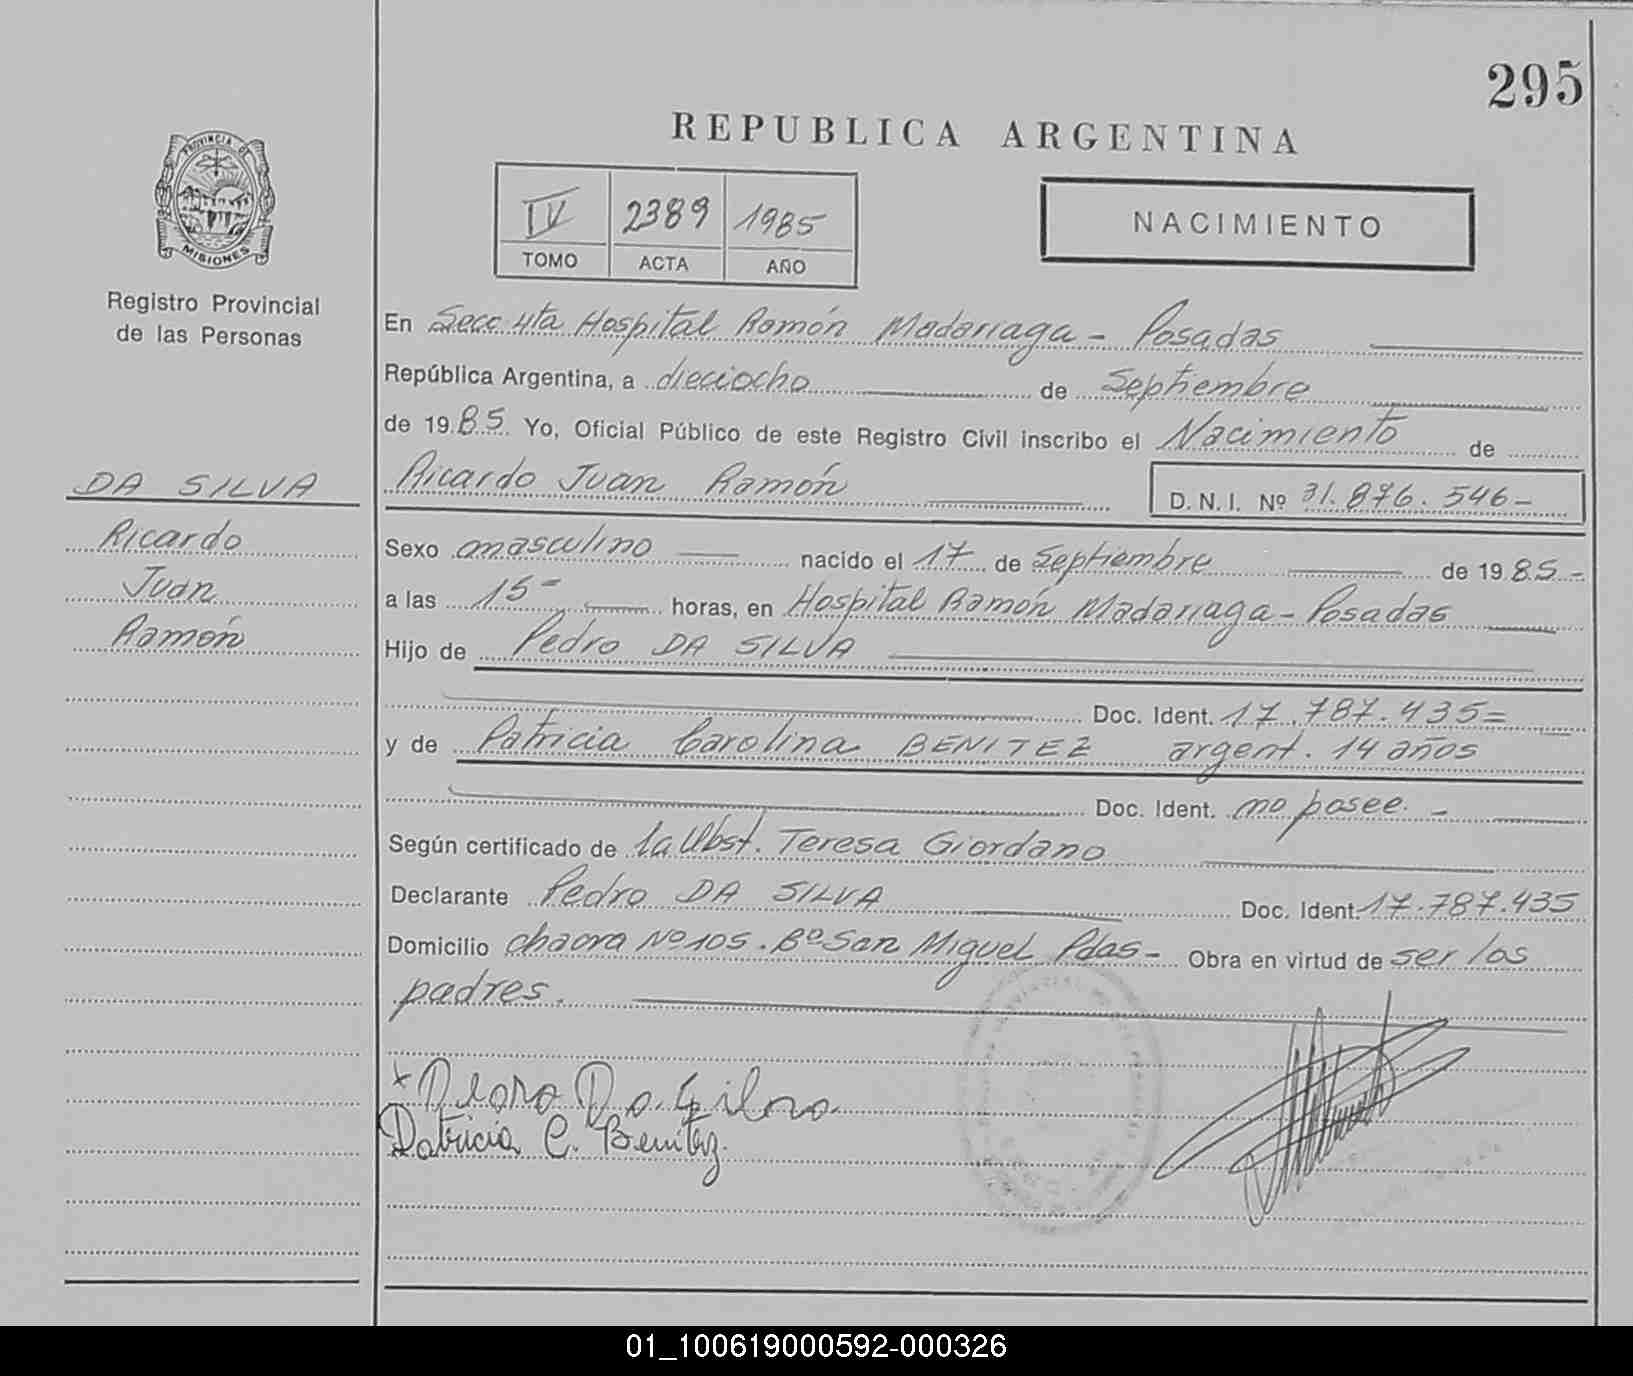 295
REPUBLICA ARGENTINA
PROVINCIA DE
MISIONES
Registro Provincial
de las Personas
IV 2389 1985
TOMO ACTA AÑO
NACIMIENTO
En Secc 4ta Hospital Ramón Madariaga - Posadas
República Argentina, a dieciocho de Septiembre
de 1985 Yo, Oficial Público de este Registro Civil inscribo el Nacimiento de
DA SILVA
Ricardo
Juan
Ramón
Ricardo Juan Ramón D.N.I. Nº 31.876.546-
Sexo masculino nacido el 17 de Septiembre de 1985-
a las 15- horas, en Hospital Ramón Madariaga - Posadas
Hijo de Pedro DA SILVA
Doc. Ident. 17.787.435=
y de Patricia Carolina BENITEZ argent. 14 años
Doc. Ident. no posee. -
Según certificado de la Obst. Teresa Giordano
Declarante Pedro DA SILVA Doc. Ident. 17.787.435
Domicilio chacra Nº 105. Bº San Miguel Pdas- Obra en virtud de ser los
padres.
x Pedro Da Silva
Patricia C. Benitez
01_100619000592-000326